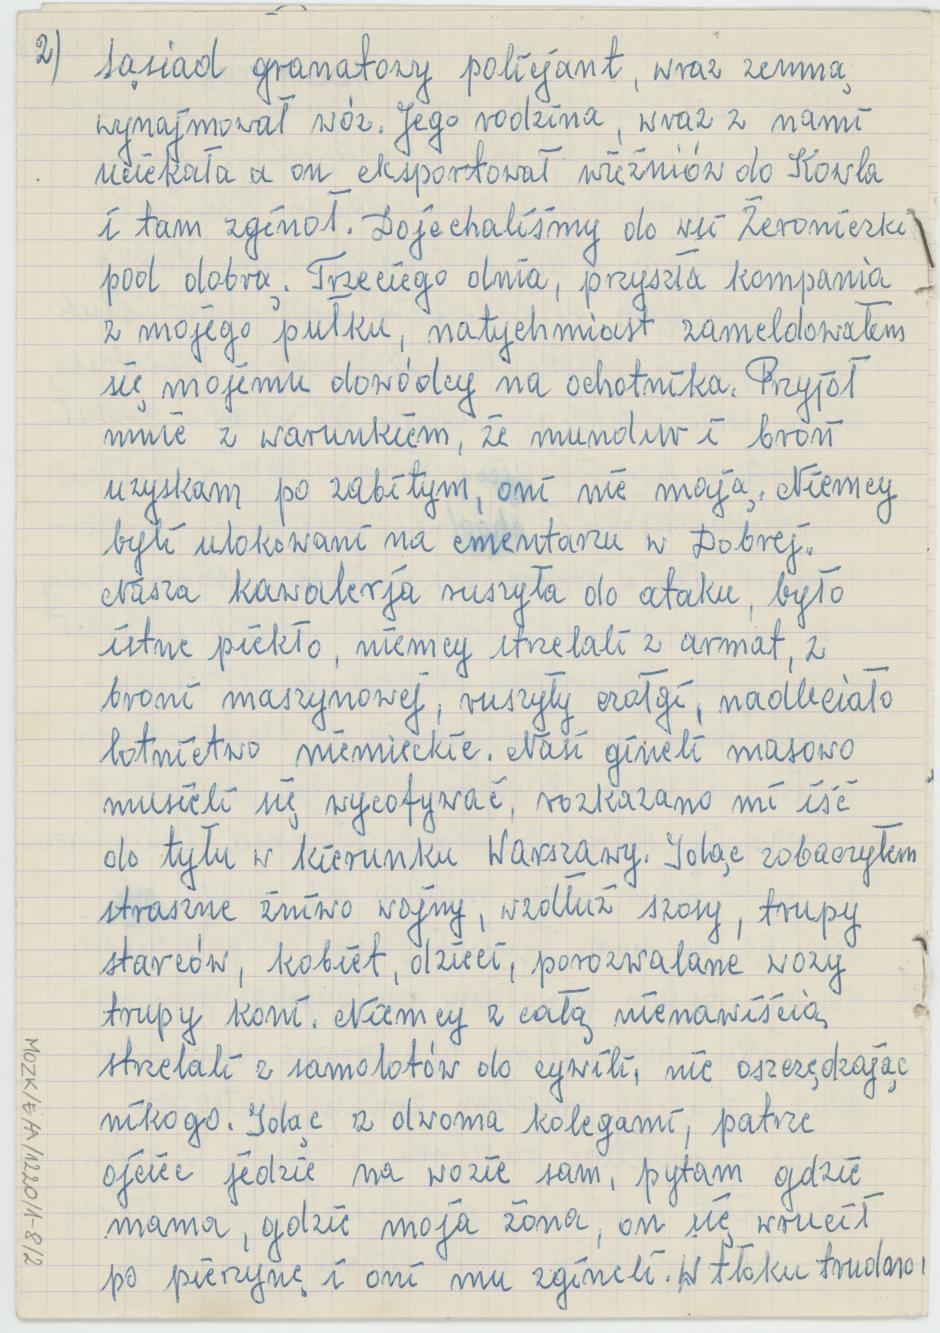 2)
sąsiad granatowy policjant, wraz zemną
wynajmował wóz. Jego rodzina, wraz z nami
uciekała a on eksportował więźniów do Kowla
i tam zginoł. Dojechaliśmy do wsi Żeroniczki
pod dobrą. Trzeciego dnia, przyszła kompania
z mojego pułku, natychmiast zameldowałem
się mojemu dowódcy na ochotnika. Przyjoł
mnie z warunkiem, że mundur i broń
uzyskam po zabitym, oni nie mają. Niemcy
byli ulokowani na cmentarzu w Dobrej.
Nasza kawalerja ruszyła do ataku, było
istne piekło, niemcy strzelali z armat, z
broni maszynowej, ruszyły czołgi, nadleciało
lotnictwo niemieckie. Nasi gineli masowo
musieli się wycofywać, rozkazano mi iść
do tyłu w kierunku Warszawy. Idąc zobaczyłem
straszne żniwo wojny, wzdłuż szosy, trupy
starców, kobiet, dzieci, porozwalane wozy
trupy koni. Niemcy z całą nienawiścią
strzelali z samolotów do cywili, nie oszczędzając
nikogo. Idąc z dwoma kolegami, patrze
ojciec jedzie na wozie sam, pytam gdzie
mama, gdzie moja żona, on się wrucił
po pierzynę i oni mu zgineli. W tłoku trudno
MOZK/E/A/1220/1-8/2